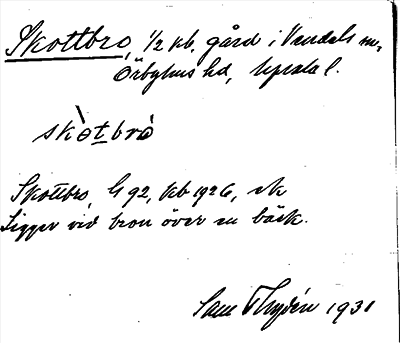 Skottbro, 1/2 kb. gård i Vendels sn,
Örbyhus hd, Upsala l.
skòtbrò
Skottbro, G 92, kb 1926, ek
Ligger vid bron över en bäck.
Sam Thydén 1931